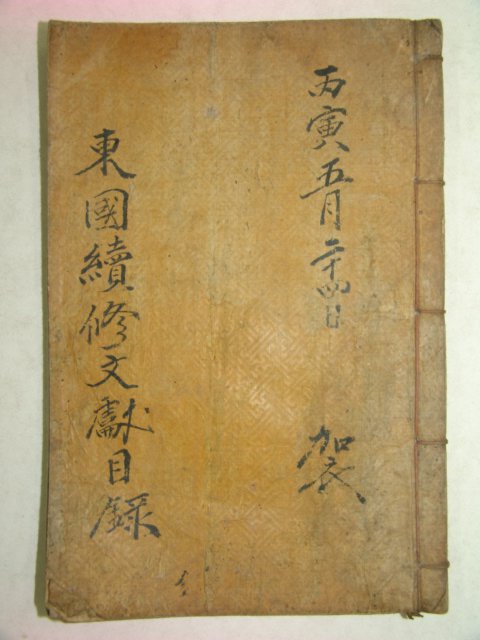 丙寅五月二十四日
袈
東國續修文獻目錄